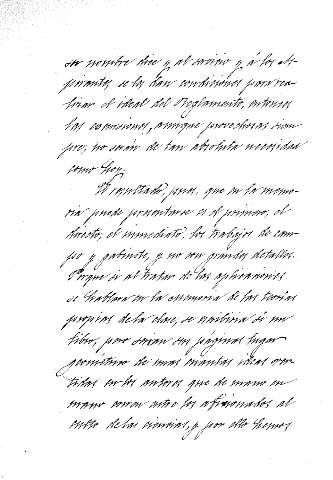 su nombre dice y al servicio y á los as-
pirantes se les dan condiciones para rea-
lizar el ideal del Reglamento, entonces
las comisiones, aunque provechosas siem-
pre, no serán de tan absoluta necesidad
como hoy.
El resultado, pues, que en la memo-
ria puede presentarse es el primero, el
directo, el inmediato, los trabajos de cam-
po y gabinete, y no con grandes detalles.
Porque si al tratar de las aplicaciones
se hablara en la memoria de las teorías
propias de la clase, se escribiria si un
libro, pero serían sus páginas lugar
geométrico de unas cuantas ideas emi-
tidas en los autores que de mano en
mano corren entre los aficionados al
culto de las ciencias, y por ello hemos